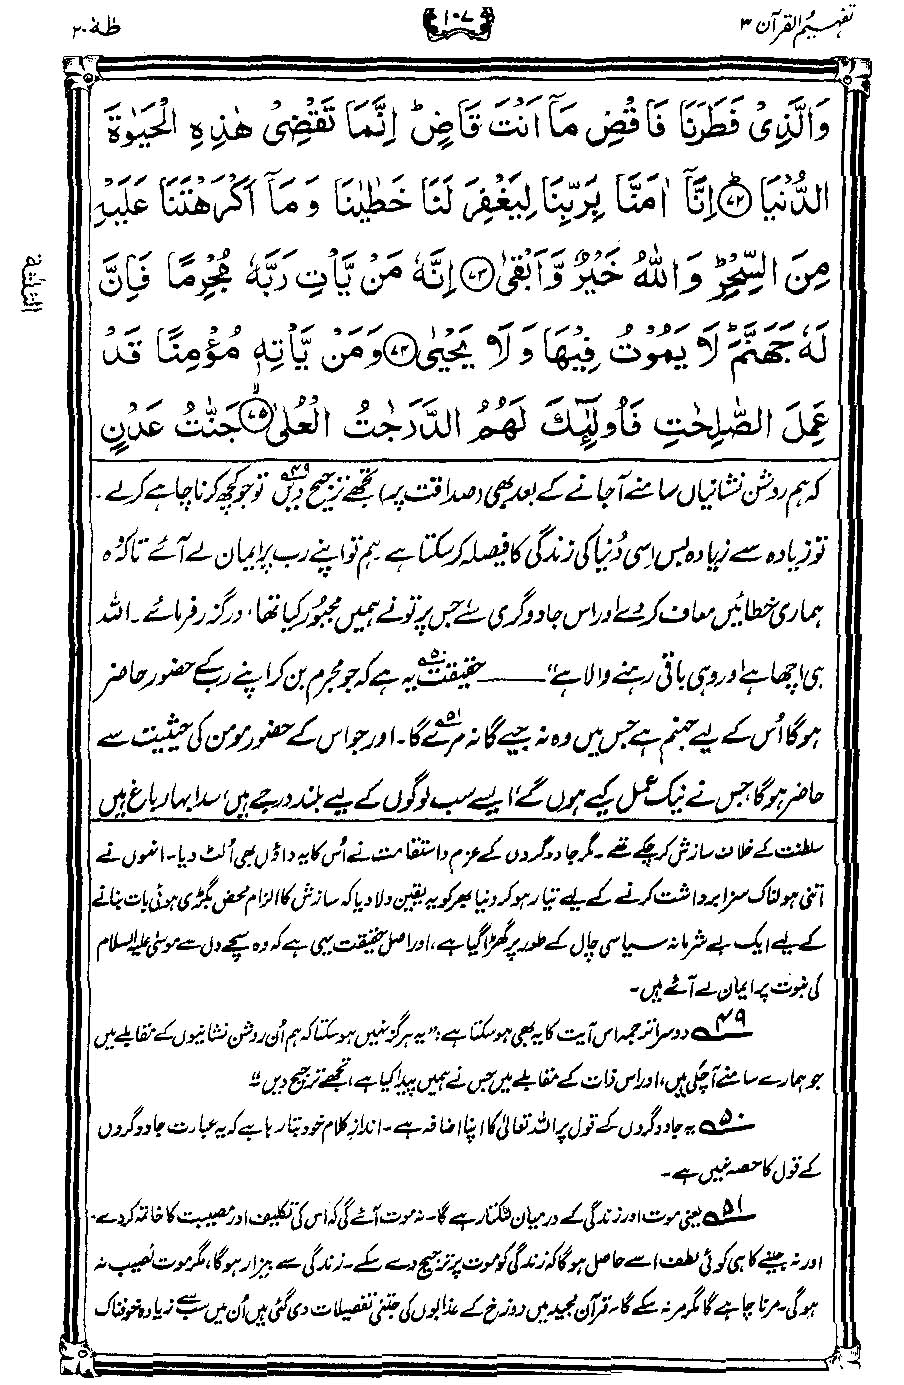 تفہیم القرآن ۳
۱۰۷
طٰہٰ ۲۰
وَالَّذِیْ فَطَرَنَا فَاقْضِ مَآ اَنْتَ قَاضٍ ؕ اِنَّمَا تَقْضِیْ هٰذِهِ الْحَیٰوةَ
الدُّنْیَا ﴿۷۲﴾ اِنَّآ اٰمَنَّا بِرَبِّنَا لِیَغْفِرَ لَنَا خَطٰیٰنَا وَ مَآ اَكْرَهْتَنَا عَلَیْهِ
مِنَ السِّحْرِ ؕ وَاللّٰهُ خَیْرٌ وَّاَبْقٰی ﴿۷۳﴾ اِنَّهٗ مَنْ یَّاْتِ رَبَّهٗ مُجْرِمًا فَاِنَّ
لَهٗ جَهَنَّمَ ؕ لَا یَمُوْتُ فِیْهَا وَ لَا یَحْیٰی ﴿۷۴﴾ وَمَنْ یَّاْتِهٖ مُؤْمِنًا قَدْ
عَمِلَ الصّٰلِحٰتِ فَاُولٰٓئِكَ لَهُمُ الدَّرَجٰتُ الْعُلٰی ﴿۷۵﴾ جَنّٰتُ عَدْنٍ
الثلثة
کہ ہم روشن نشانیاں سامنے آجانے کے بعد بھی (صداقت پر) تجھے ترجیح دیں۴۹ تو جو کچھ کرنا چاہے کرلے۔
تو زیادہ سے زیادہ بس اِسی دُنیا کی زندگی کا فیصلہ کرسکتا ہے۔ ہم تو اپنے رب پر ایمان لے آئے تاکہ وہ
ہماری خطائیں معاف کردے اور اس جادوگری سے جس پر تونے ہمیں مجبُور کیا تھا، درگزر فرمائے۔ اللہ
ہی اچھا ہے اور وہی باقی رہنے والا ہے“ ——— حقیقت۵۰ یہ ہے کہ جو مجرم بن کر اپنے رب کے حضور حاضر
ہوگا اُس کے لیے جہنم ہے جس میں وہ نہ جیے گا نہ مرے۵۱ گا۔ اور جو اس کے حضور مومن کی حیثیت سے
حاضر ہوگا، جس نے نیک عمل کیے ہوں گے، ایسے سب لوگوں کے لیے بلند درجے ہیں، سدا بہار باغ ہیں
سلطنت کے خلاف سازش کرچکے تھے۔ مگر جادوگروں کے عزم و استقامت نے اُس کا یہ داؤں بھی اُلٹ دیا۔ انھوں نے
اتنی ہولناک سزا برداشت کرنے کے لیے تیار ہوکر دنیا بھر کو یہ یقین دلادیا کہ سازش کا الزام محض بگڑی ہوئی بات بنانے
کے لیے ایک بے شرمانہ سیاسی چال کے طور پر گھڑا گیا ہے، اور اصل حقیقت یہی ہے کہ وہ سچے دل سے موسٰی علیہ السلام
کی نبوت پر ایمان لے آئے ہیں۔
۴۹ دوسرا ترجمہ اس آیت کا یہ بھی ہوسکتا ہے: ”یہ ہرگز نہیں ہوسکتا کہ ہم اُن روشن نشانیوں کے مقابلے میں
جو ہمارے سامنے آچکی ہیں، اور اس ذات کے مقابلے میں جس نے ہمیں پیدا کیا ہے، تجھے ترجیح دیں“
۵۰ یہ جادوگروں کے قول پر اللہ تعالیٰ کا اپنا اضافہ ہے۔ اندازِ کلام خود بتا رہا ہے کہ یہ عبارت جادوگروں
کے قول کا حصہ نہیں ہے۔
۵۱ یعنی موت اور زندگی کے درمیان لٹکتا رہے گا۔ نہ موت آئے گی کہ اس کی تکلیف اور مصیبت کا خاتمہ کردے۔
اور نہ جینے کا ہی کوئی لطف اسے حاصل ہوگا کہ زندگی کو موت پر ترجیح دے سکے۔ زندگی سے بیزار ہوگا، مگر موت نصیب نہ
ہوگی۔ مرنا چاہے گا مگر مر نہ سکے گا۔ قرآن مجید میں دوزخ کے عذابوں کی جتنی تفصیلات دی گئی ہیں اُن میں سب سے زیادہ خوفناک